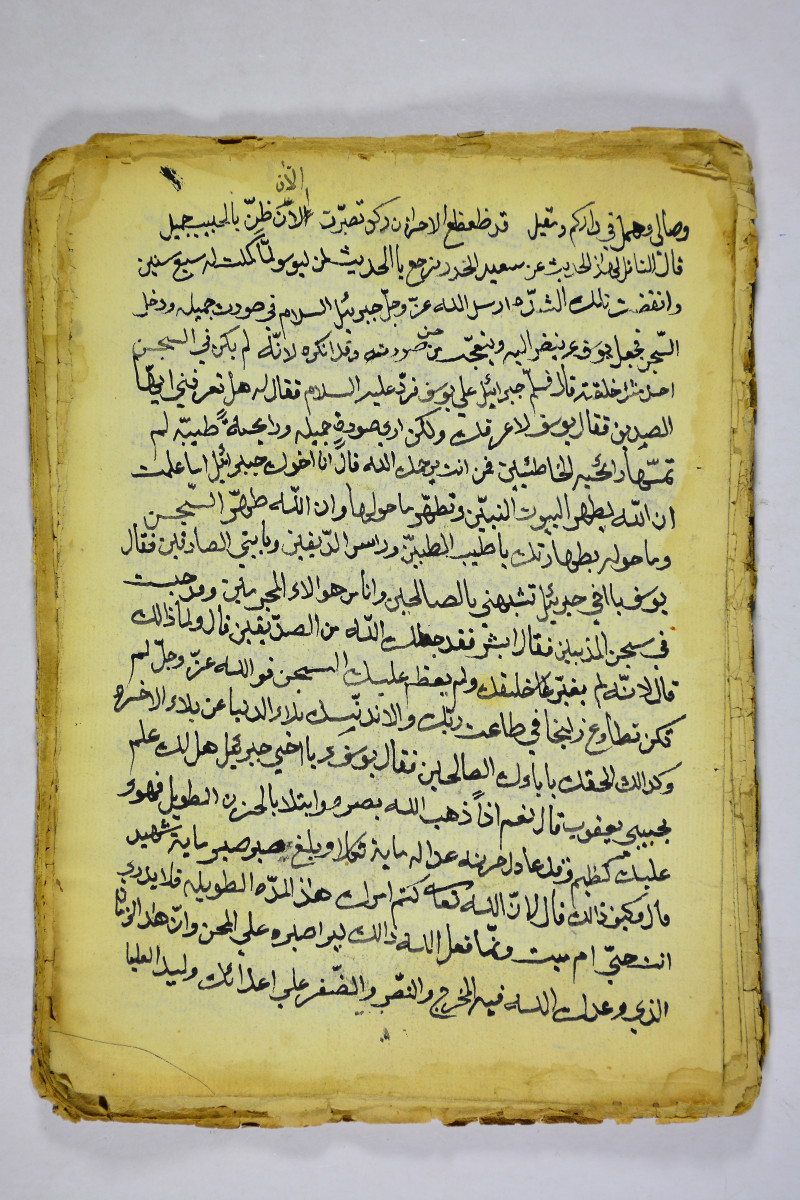 الآن
وصالي وهمل في داركم ومقيل قد ضعضع الاحزان ركن تصبرت الآن ظنّ بالحبيب جميل
قال الناقل لهذا الحديث عن سعيد الخدر نرجع باالحديث لمن ليوسو لمّا كملت له سبع سنين
وانقضت تلك الشدّه ارسل الله عزّ وجلّ جبرئيل السلام في صورت جميله ودخل
السّجن فجعل يوسف ع ينضر اليه ويتعجّب من حسن صورته وقد انكره لانّه لم يكن في السجن
احد مثل خلقته قال فسلّم جبرائيل علي يوسف فردّ عليه السلام فقال له هل تعرفني ايهّا
الصديق فقال يوسف لا عرفك ولكن ارى صورةٍ جميله ورايحةً طيبّه لم
تمسّها رائحيه الخاطئيين فمن انت يرحمك الله قال انا اخوك جبرائيل اما علمت
ان الله يطهر البيوت النبيّين وتطهّر ما حولها وان اللّه طهّر السّجن
وما حوله بطهارتك ياطيب الطيبيّن وراس الصّديقين ويابني الصادقين فقال
يوسف يااخي جبرئيل تشبهني بالصالحين وانا من هوالاء المجرمين وقد حبست
في سجن المذنبين فقال ابشر فقد جعلك اللّه من الصدّيقين قال ولما ذالك
قال لانّه لم يغيّر خلقك ولم يعظم عليك السجن فوالله عزّ وجلّ لم
تكن تطاوع زليخا في طاعت ربّك والاندنّسك بلاء الدنيا عن بلاء الاخره
وكذالك الحقك باباءك الصالحين فقال يوسف ع يااخي جبرئيل هل لك علم
بحبيبي يعقوب قال نعم اذاً ذهب الله بصره وابتلا بالحزن الطويل فهو
عليك كظيم وقد عادل حزنه عدل ماية ثكلا وبلغ صبره صبر ماية شهيد
قال وكيف ذالك قال لانّ اللّه تعا كتم امرك هذا المدّه الطويله فلا يدري
انت حيّ ام ميت وانّما فعل اللّه ذالك ليرا صبره علي المحن وانّ هذا الزمان
الذي وعدك اللّه فيه الفرج والنصّر والضّفر علي اعدائك وليد العليا